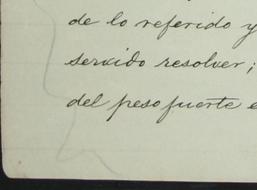 de lo referido y
servido resolver;
del peso fuerte e